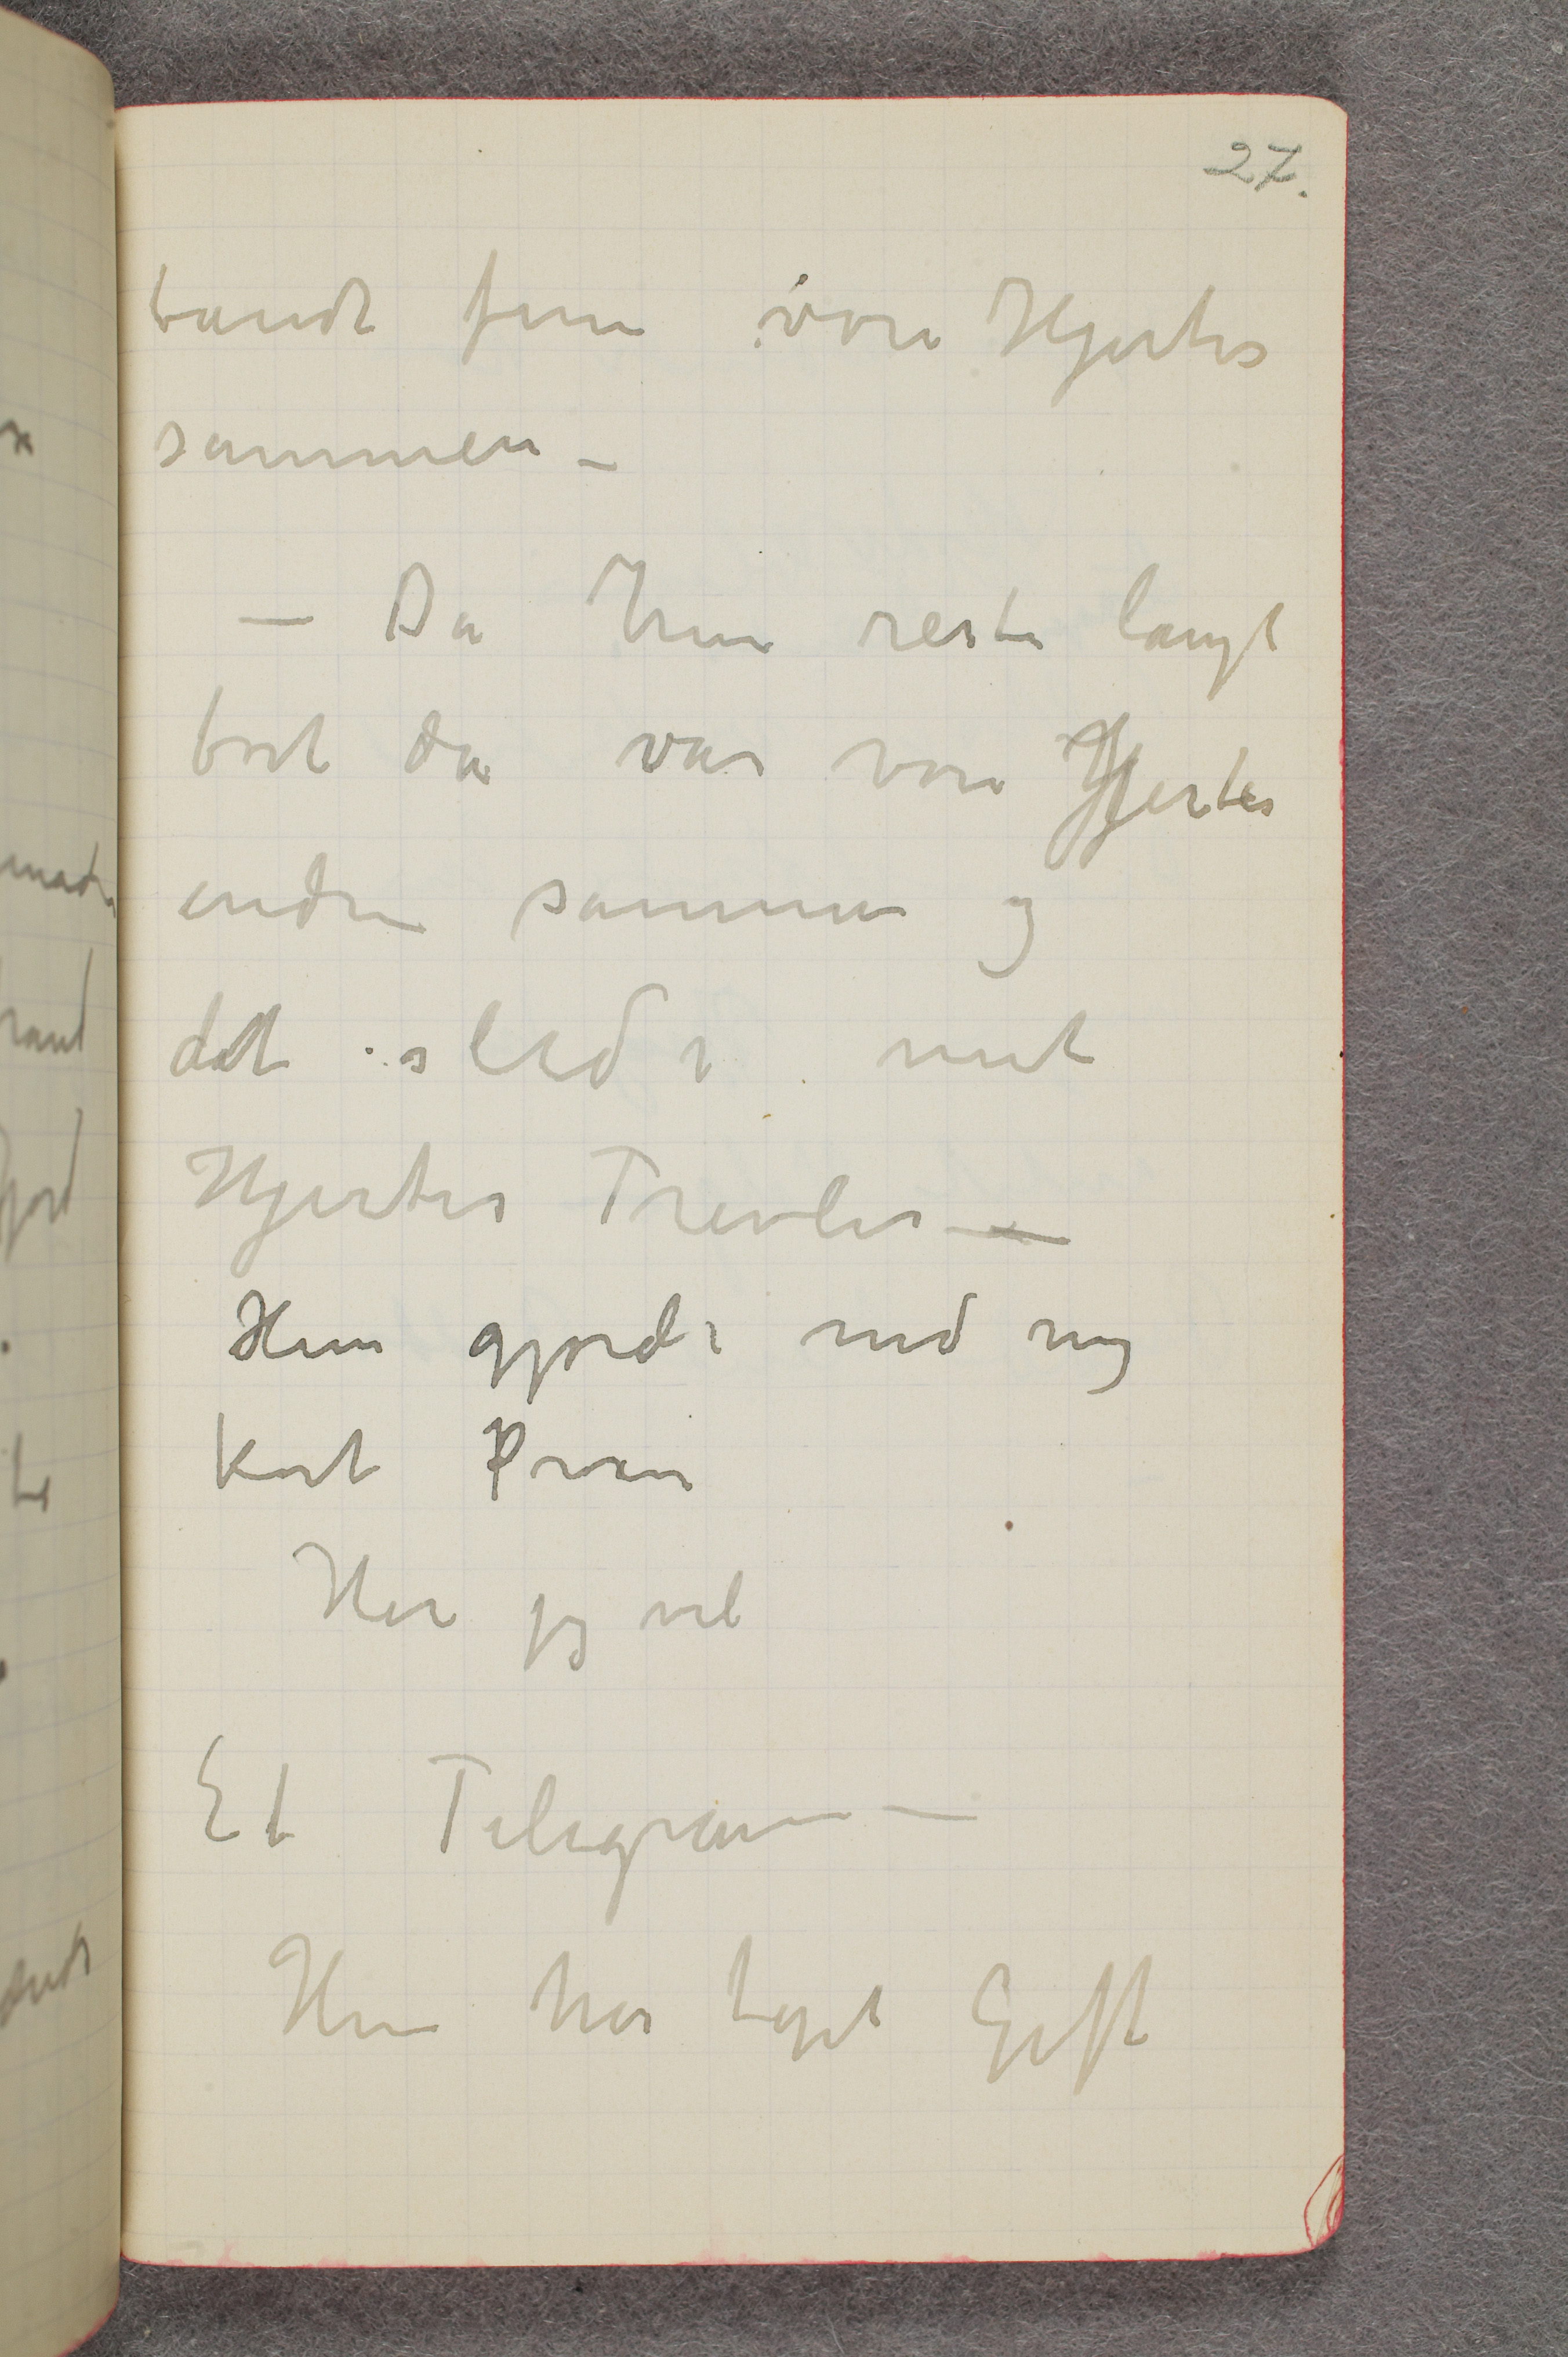 27.
bandt fem vore Hjerter
sammen –
– Da hun reste langt
bort da var vore Hjerter
endnu sammen og
det sled i mit
Hjertes Trevler –
Hun gjorde med mig
kort Proces
Har jeg vel
Et Telegram –
Hun har taget Gift